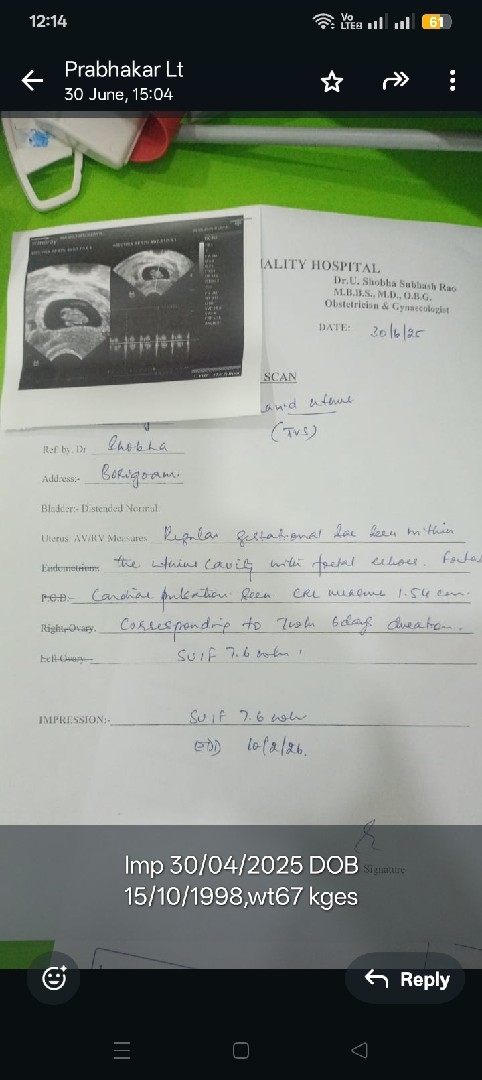 12:14
Vo
LTE2
61
Prabhakar Lt
30 June, 15:04
ALITY HOSPITAL
Dr.U. Shobha Subhash Rao
M.B.B.S., M.D., O.B.G.
Obstetrician & Gynaecologist
DATE: 30/6/25
SCAN
(TVS)
Ref by. Dr Shobha
Address:-
Bladder:- Distended Normal:
Uterus: AV/RV Measures Regular gestational Sac Seen within
Endometrium: the uterine cavity with foetal echoes. Foetal
P.O.D.- Cardiac pulsation Seen CRL measure 1.54 cm.
Right Ovary. Corresponding to 7wk 6days duration.
Left Ovary SUIF 7.6
IMPRESSION:- SUIF 7.6
EDD 10/2/26.
Signature
Imp 30/04/2025 DOB
15/10/1998,wt67 kges
Reply